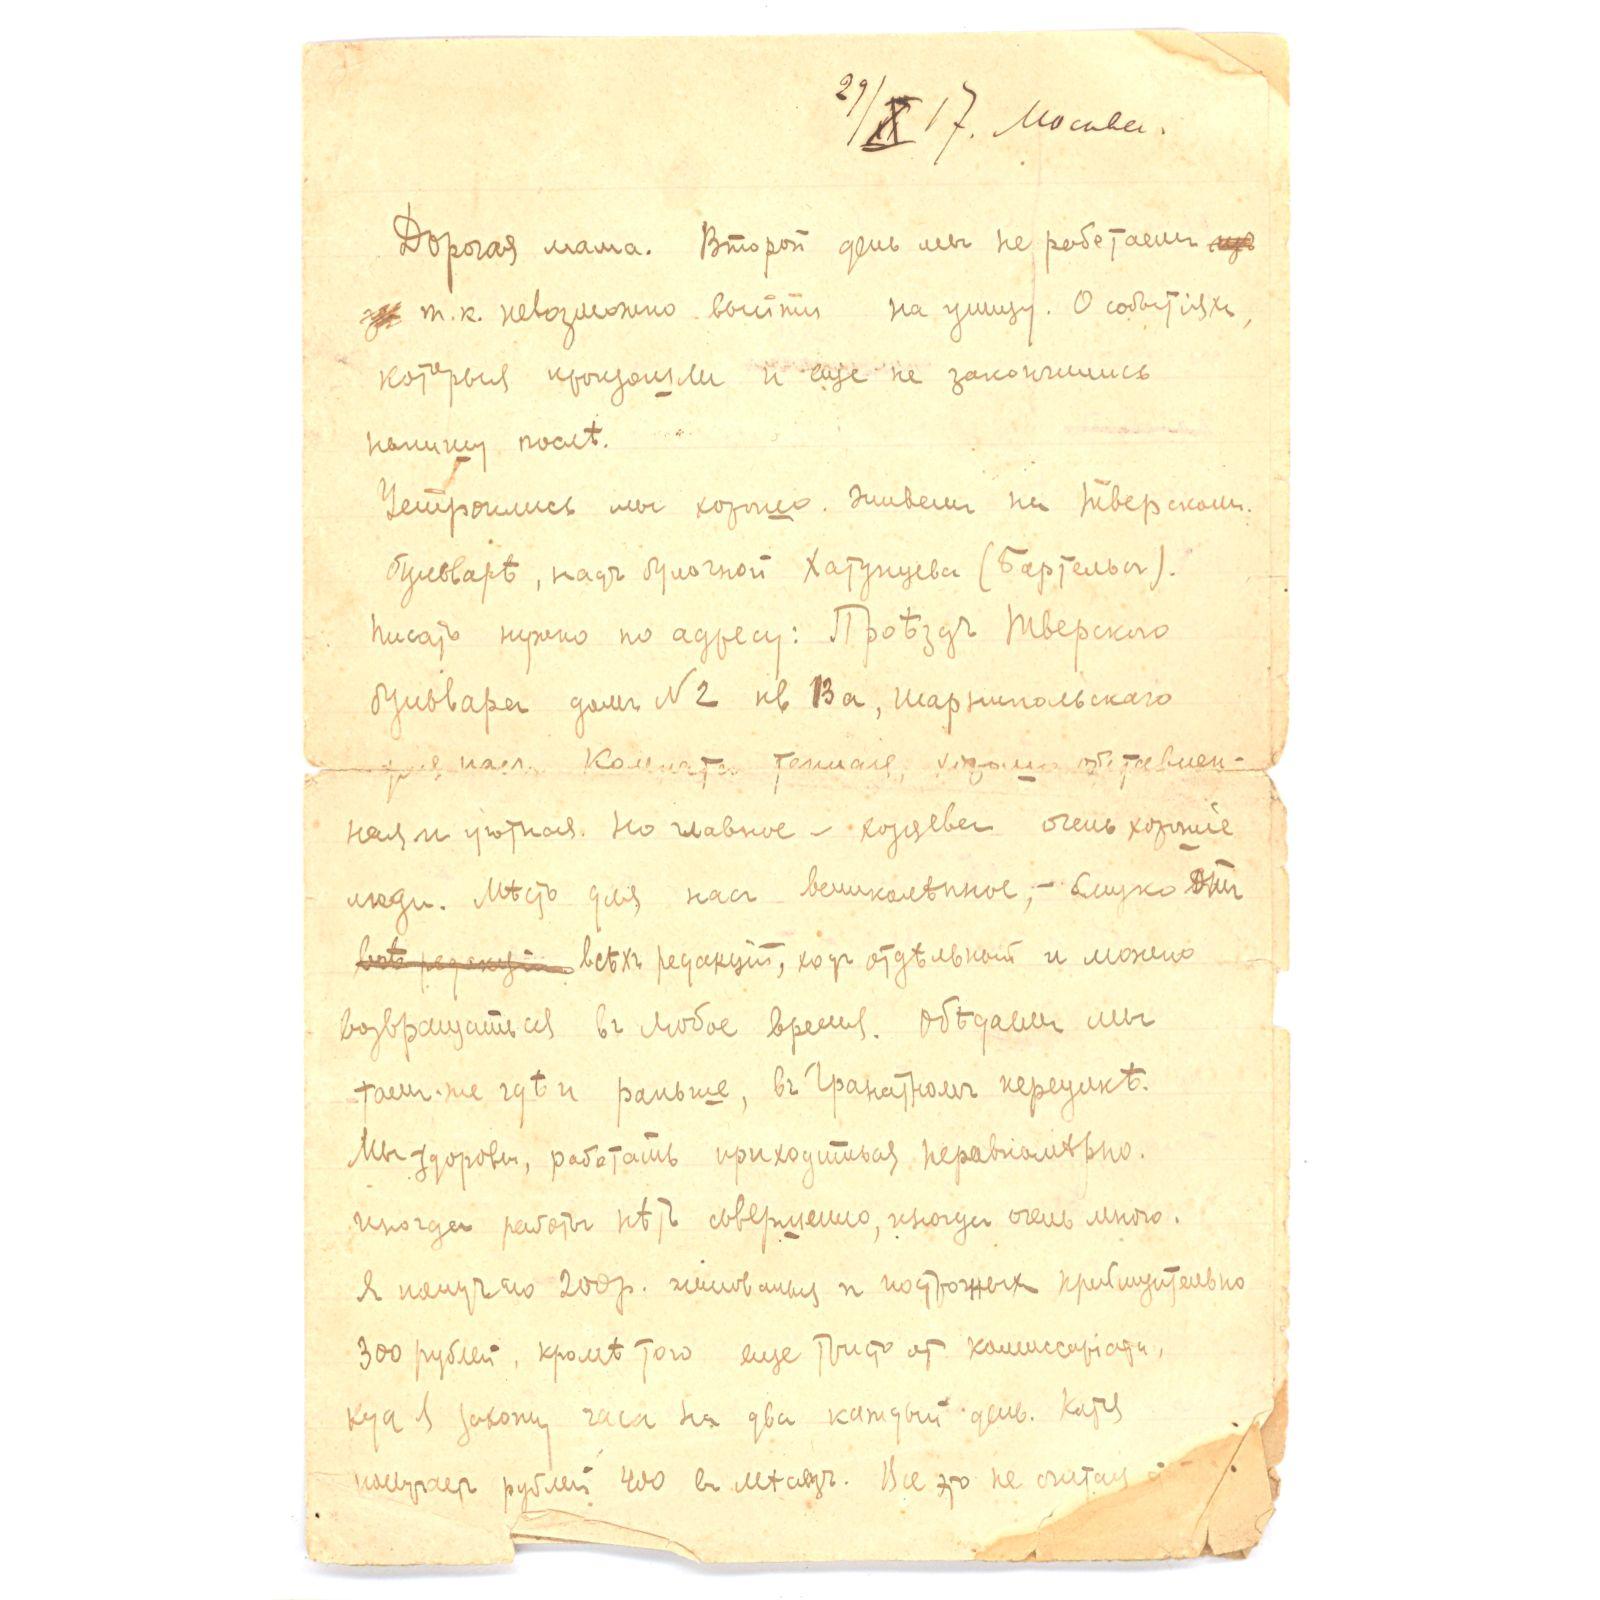 29/X 17. Москва.
Дорогая мама. Второй день мы не работаем
т.к. невозможно выйти на улицу. О событіяхъ,
которыя произошли и еще не закончились
напишу послѣ.
Устроились мы хорошо. Живем на Тверском.
бульварѣ, надъ булочной Хатунцева (Бартельса).
Писать нужно по адресу: Проѣздъ Тверского
бульвара домъ № 2 кв 13а, Шарнипольскаго
для нас. Комната теплая, хорошо обставлен-
ная и уютная. Но главное – хозяева очень хорошіе
люди. Мѣсто для насъ великолѣпное, – близко отъ
всѣхъ редакцій, ходъ отдѣльный и можно
возвращаться въ любое время. Обѣдаем мы
там-же гдѣ и раньше, въ Гранатномъ переулкѣ.
Мы здоровы, работать приходиться неравномѣрно.
Иногда работы нѣтъ совершенно, иногда очень много.
Я получаю 200р. жалованья и построчных приблизительно
300 рублей, кромѣ того еще триста от комиссаріата,
куда я захожу часа на два каждый день. Катя
получает рублей 400 въ мѣсяцъ. Все это не считая